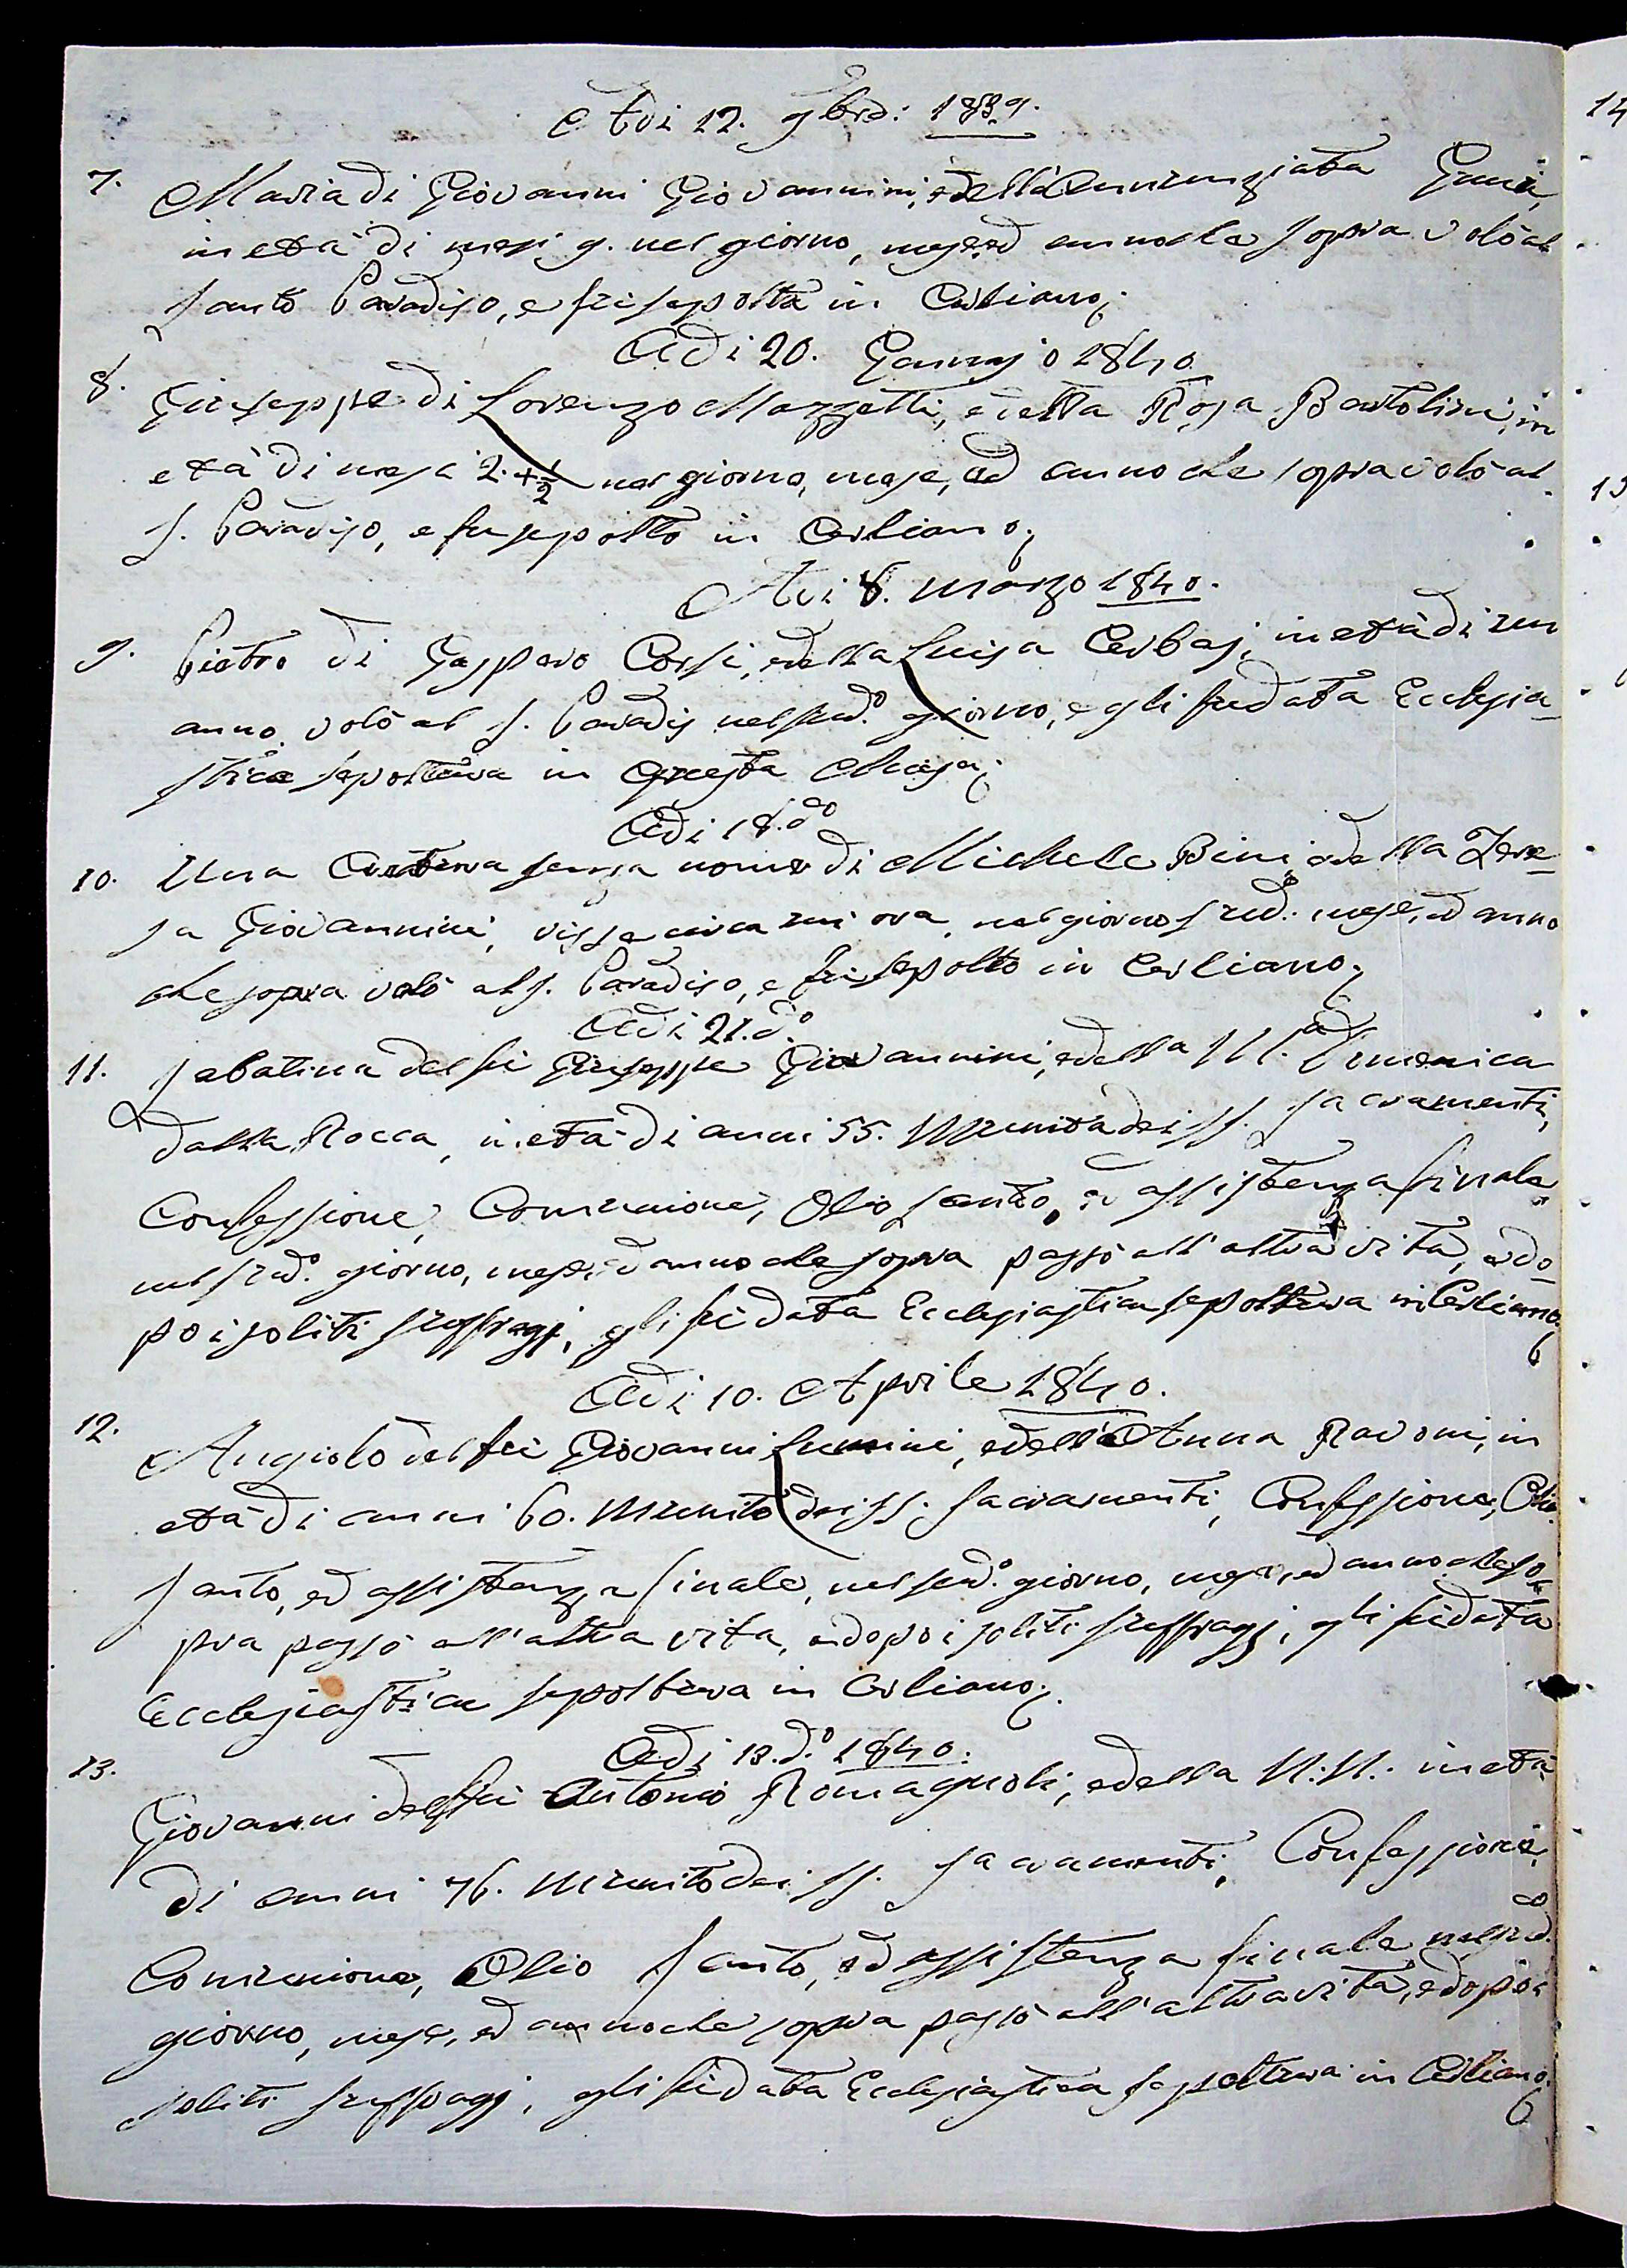 Adi 12. 9bre: 1839.
7. Maria di Giovanni Giovannini, e dell'Annunziata
in età di mesi 9. nel giorno, mese, ed anno che sopra volò al
Santo Paradiso, e fu sepolta in Casliano;
Adi 20. Gennajo 1840
8. Giuseppe di Lorenzo Mazzetti, e della Rosa Bartolini, in
età di mesi 2. + 1/2 nel giorno, mese, ed anno che sopra volò al
S. Paradiso, e fu sepolto in Casliano;
Adi 8. Marzo 1840.
9. Pietro di Gasparo Corsi, e della Luisa Cerbaj, in età di un
anno volò al S. Paradis nel sud.o giorno, e gli fu data Ecclesia-
stica sepoltura in questa Chiesa;
Adi 18. do
10. Una Creatura senza nome di Michele Bini, e della Tere-
sa Giovannini, visse circa un ora, nel giorno sud.o mese, ed anno
che sopra volò al S. Paradiso, e fu sepolto in Casliano;
Adi 21. do.
11. Sabatina del fu Giuseppe Giovannini, e della M.a Domenica
dalla Rocca, in età di anni 55. Munita dei SS. Sacramenti,
Confessione, Comunione, Olio Santo, ed assistenza finale
nel sud.o giorno, mese, ed anno che sopra passò all'altra vita, e do-
po i soliti suffragj, gli fu data Ecclesiastica sepoltura in Casliano;
Adi 10. Aprile 1840.
12. Angiolo del fu Giovanni Lumini, e dell'Anna Ravoni, in
età di anni 60. Munito dei SS. Sacramenti, Confessione, Olio
Santo, ed assistenza finale, nel sud.o giorno, mese, ed anno che so-
pra passò all'altra vita, e dopo i soliti suffragj, gli fu data
Ecclesiastica sepoltura in Casliano;
Adi 13. do. 1840.
13. Giovanni del fu Antonio Romagnoli, e della N:N:. in età
di anni 76. Munito dei SS. Sacramenti, Confessione,
Comunione, Olio Santo, ed assistenza finale nel sud.
giorno, mese, ed anno che sopra passò all'altra vita, e dopo i
soliti suffragj, gli fu data Ecclesiastica sepoltura in Casliano;
14
15